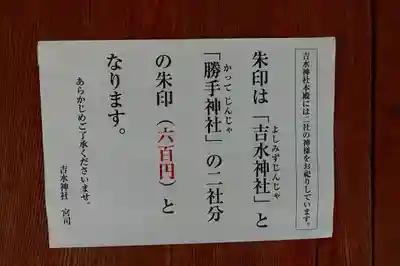 吉水神社本殿には二社の神様をお祀りしています。
朱印は「吉水神社」と
よしみずじんじゃ
「勝手神社」の二社分
かって じんじゃ
の朱印(六百円)と
なります。
あらかじめご了承くださいませ。
吉水神社 宮司